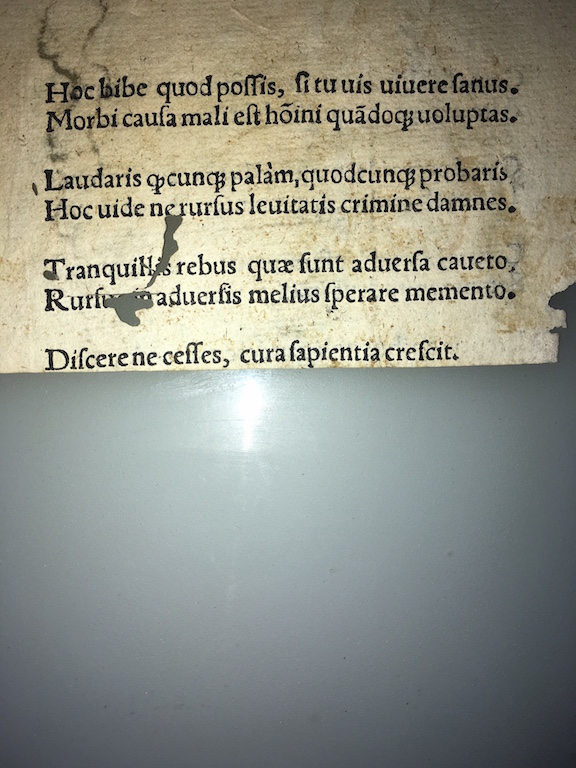 Hoc bibe quod poſſis, ſi tu uis uiuere ſanus.
Morbi cauſa mali eſt hõini quãdoqꝫ uoluptas.
Laudaris ꝙcunqꝫ palàm, quodcunqꝫ probaris
Hoc uide ne rurſus leuitatis crimine damnes.
Tranquillis rebus quæ ſunt aduerſa caueto.
aduerſis melius ſperare memento.
Diſcere ne ceſſes, cura ſapientia creſcit.